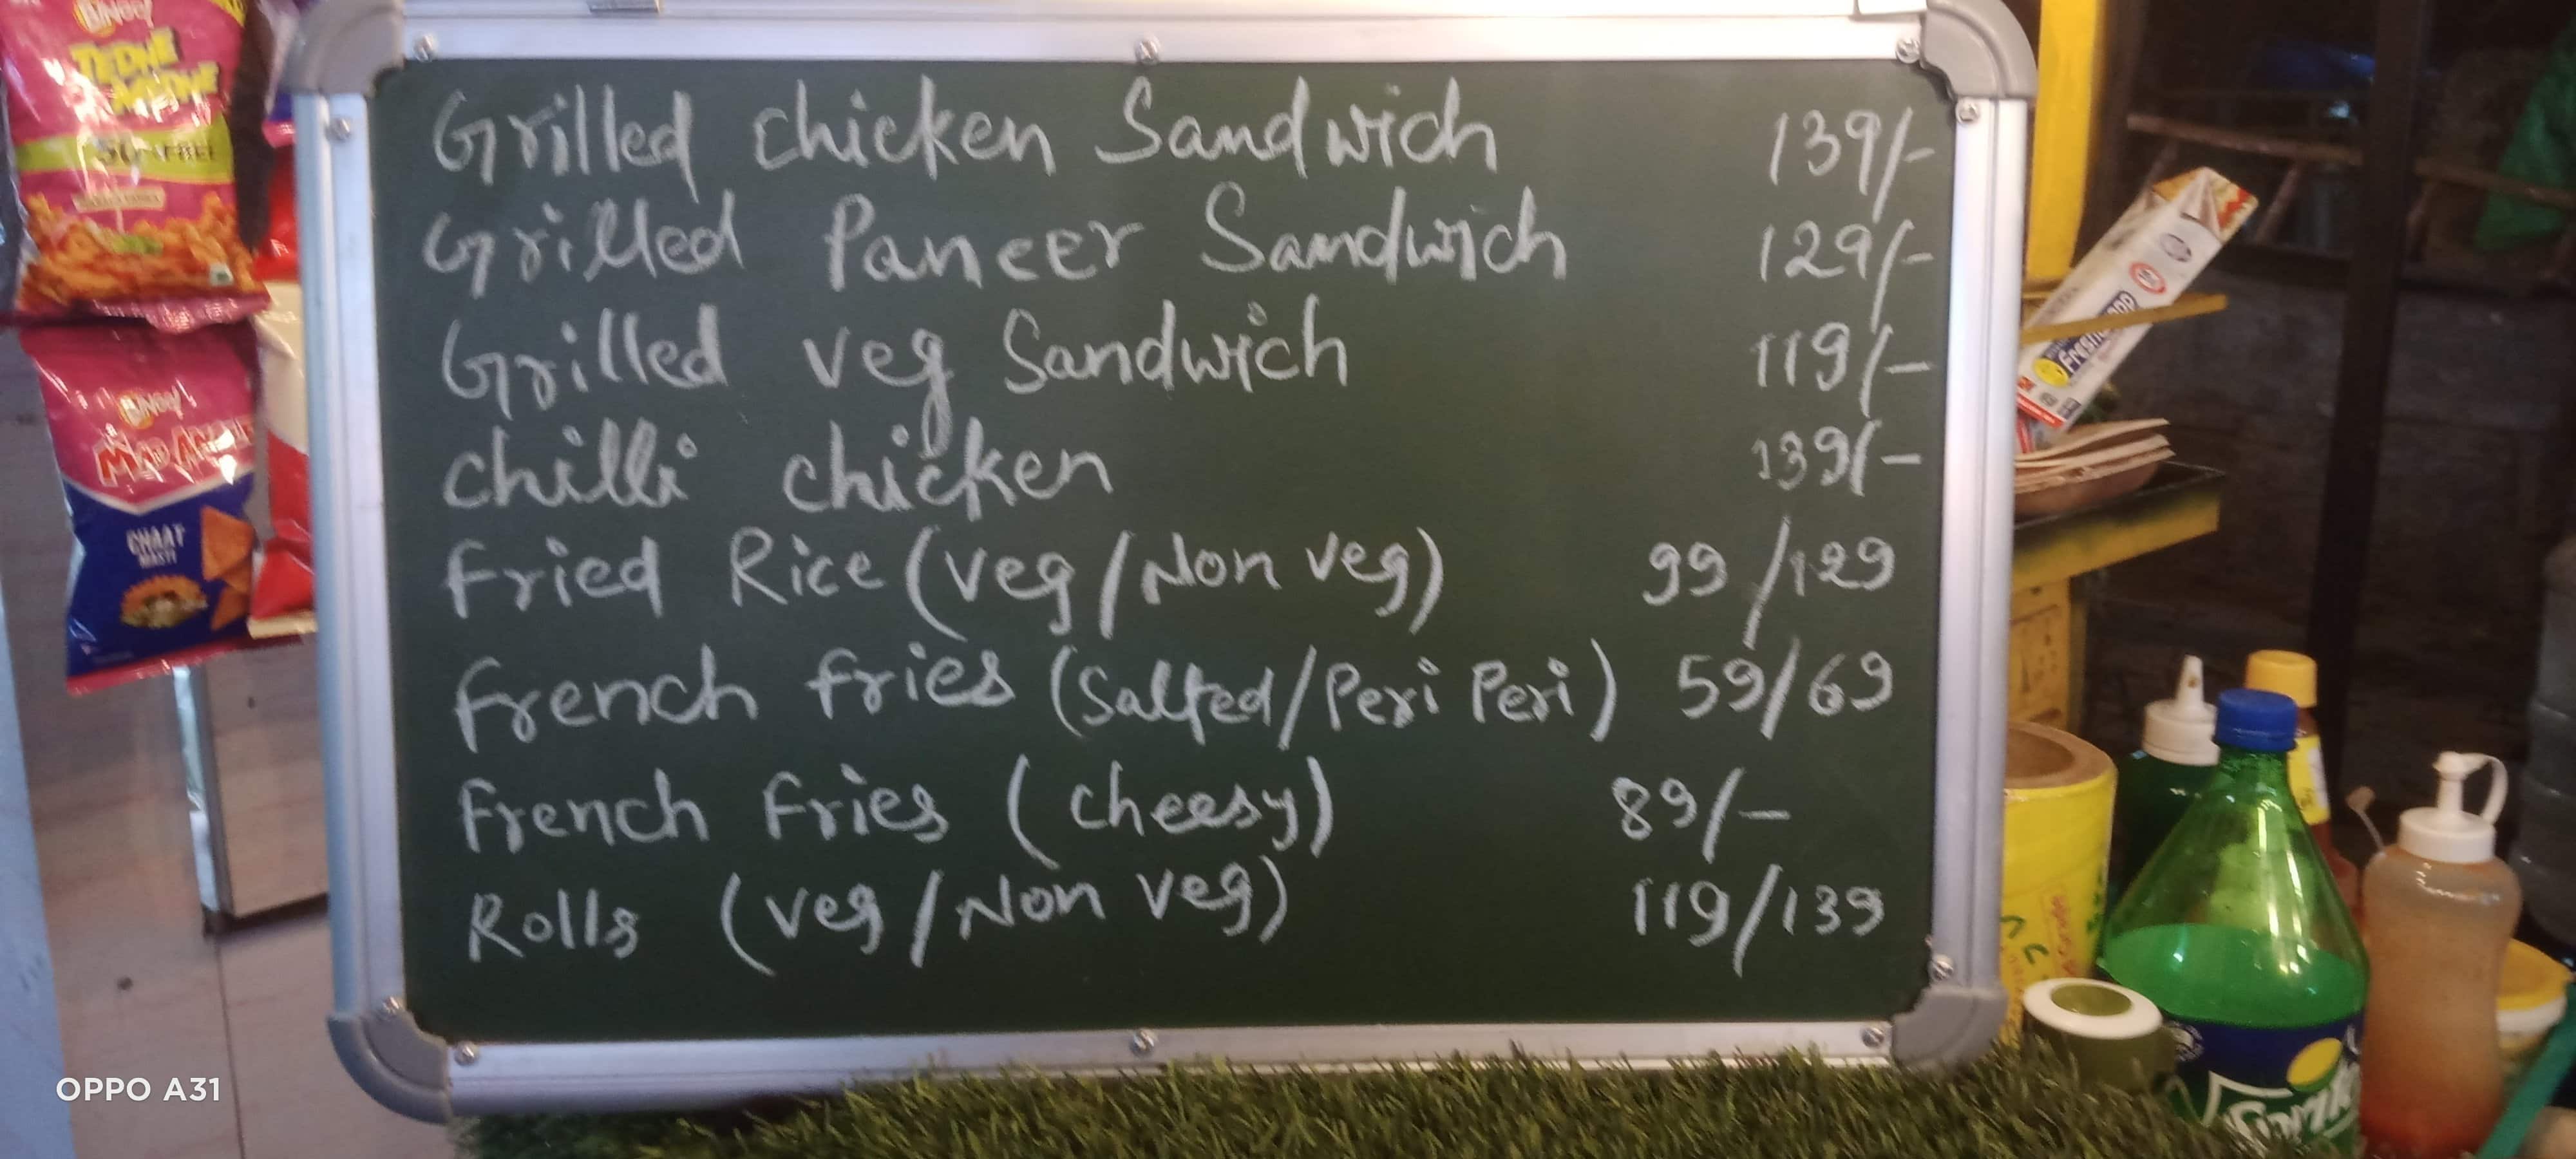 BiNGO!
TEDHE
MEDHE
BiNGO!
MAD ANGLES
CHAAT
MASTI
Grilled chicken Sandwich 139/-
Grilled Paneer Sandwich 129/-
Grilled veg Sandwich 119/-
chilli chicken 139/-
Fried Rice (veg/Non veg) 99/129
French fries (Salted/Peri Peri) 59/69
French Fries (cheesy) 89/-
Rolls (veg/Non veg) 119/139
Sprite
OPPO A31